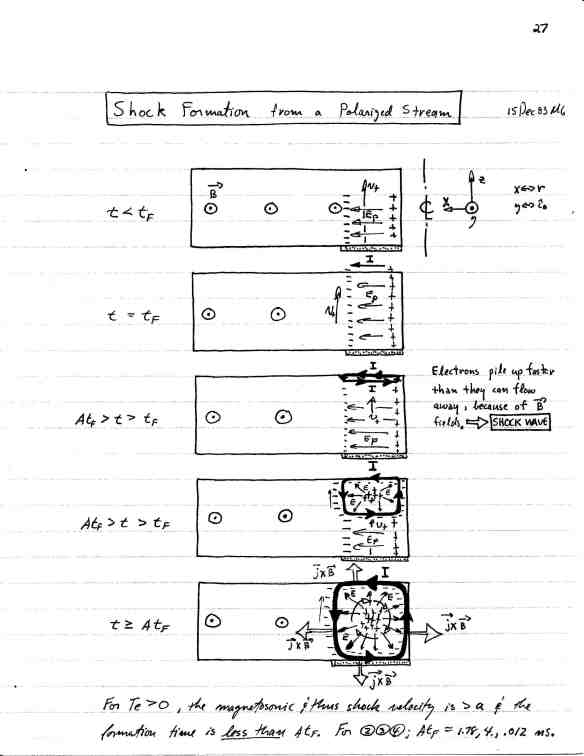 27
Shock Formation from a Polarized Stream
15 Dec 93
t < tF
B
v+
Ep
z
x
x⇔r
t = tF
I
v+
Ep
AtF > t > tF
I
I
v+
Ep
Electrons pile up faster
than they can flow
away, because of B
fields. ⇒ SHOCK WAVE
AtF > t > tF
I
E
E
E
v+
Ep
t ≥ AtF
j×B
I
E
E
E
j×B
j×B
j×B
For Te > 0, the magnetosonic & thus shock velocity is > a & the
formation time is less than AtF. For ②③④; AtF = 1.78, 4., .012 ms.